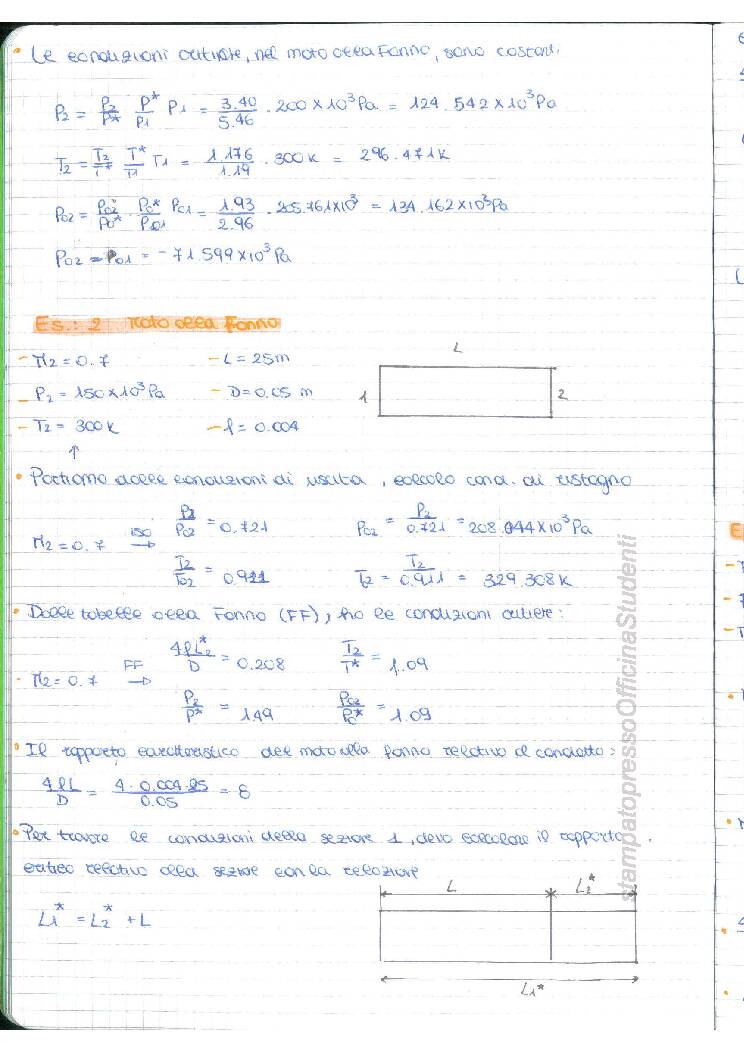 • Le condizioni critiche, nel moto alla Fanno, sono costanti.
P2 = P2/P* P*/P1 P1 = 3.40/5.46 · 200×10³Pa = 124.542×10³Pa
T2 = T2/T* T*/T1 T1 = 1.176/1.19 · 300K = 296.471K
P02 = P02/P0* P0*/P01 P01 = 1.93/2.96 · 205.761×10³ = 134.162×10³Pa
P02 - P01 = -71.599×10³Pa
Es.: 2 Moto alla Fanno
- M2 = 0.7 - L = 25m
- P2 = 150×10³Pa - D = 0.05 m
- T2 = 300K - f = 0.004
↑
L
1 2
• Partiamo dalle condizioni di uscita, calcolo cond. di ristagno
M2 = 0.7 ISO → P2/P02 = 0.721 P02 = P2/0.721 = 208.044×10³Pa
T2/T02 = 0.911 T2 = T2/0.911 = 329.308K
• Dalle tabelle alla Fanno (FF), ho le condizioni critiche:
· M2 = 0.7 FF → 4fL2*/D = 0.208 T2/T* = 1.09
P2/P* = 1.49 P02/P0* = 1.09
• Il rapporto caratteristico del moto alla fanno relativo al condotto:
4fL/D = 4·0.004·25/0.05 = 8
• Per trovare le condizioni della sezione 1, devo calcolare il rapporto
critico relativo alla sezione con la relazione
L1* = L2* + L
L L2*
L1*
stampatopressoOfficinaStudenti